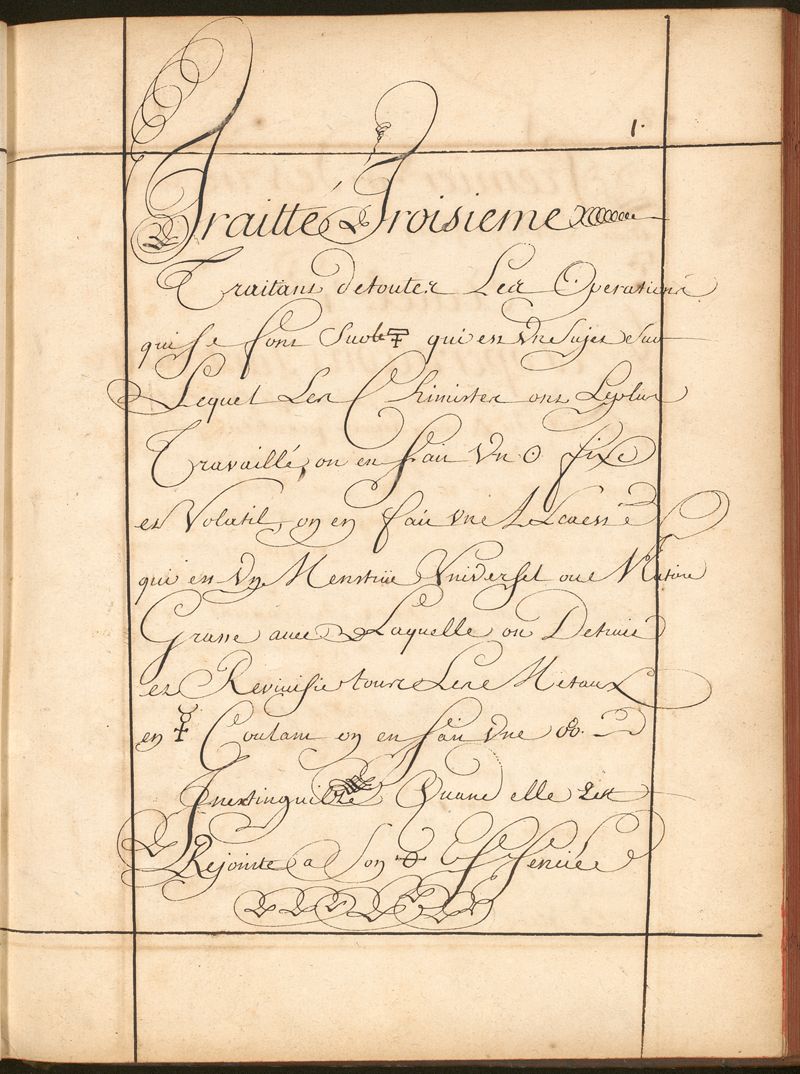 1.
Traitté Troisieme
Traitant detoutes Les Operations
qui se font Sur le 🜿 qui est Vn Sujet Sur
Lequel Les Chimistes ont Leplus
Travaillé, on en fait Vn fixe
et Volatil, on en fait vne
qui est Vn Menstrüe Vniversel ou Matiere
Grasse avec Laquelle on Detruit
et Revivifie tous Les Metaux
en ☿ Coulant on en fait Vne
Inextinguible Quand elle Est
Rejointe a Son Essencié